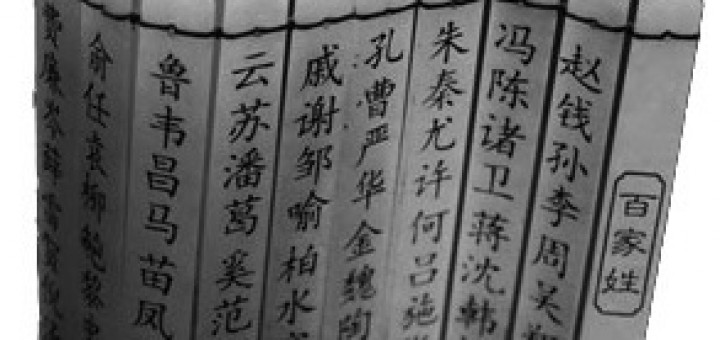 百家姓
赵钱孙李周吴
冯陈诸卫蒋沈韩
朱秦尤许何吕施
孔曹严华金魏陶
戚谢邹喻柏水
云苏潘葛奚范
鲁韦昌马苗凤
俞任袁柳
费廉岑薛雷贺倪